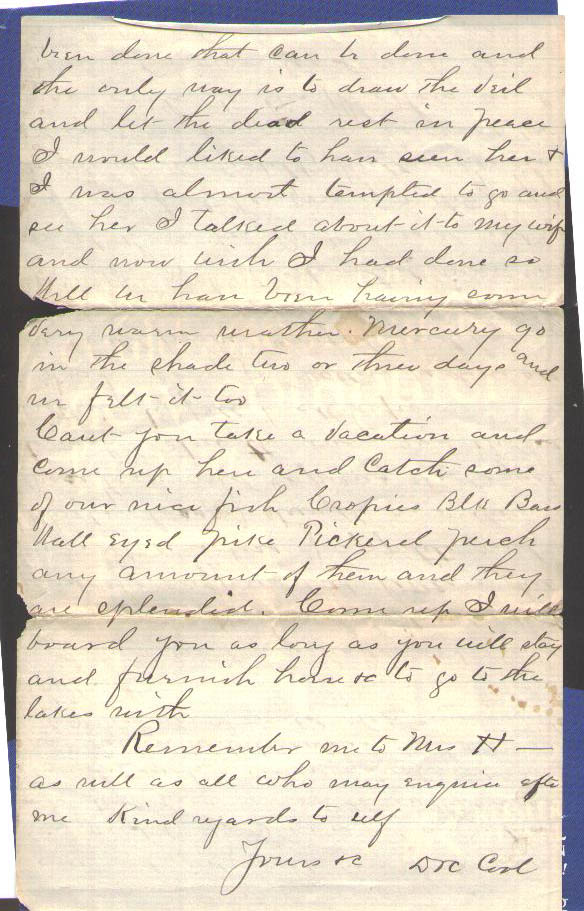 been done that can be done and
the only way is to draw the veil
and let the dead rest in peace
I would liked to han seen her &
I was almost tempted to go and
see her I talked about it to my wife
and now wish I had done so
Well we han been having some
very warm weather. Mercury 90
in the shade two or three days and
we felt it too
Cant you take a vacation and
come up here and catch some
of our nice fish Cropies Blk Bass
Wall Eyed Pike Pickerel perch
any amount of them and they
are splendid. Come up I will
board you as long as you will stay
and furnish horse &c to go to the
lakes with
Remember me to Mrs H —
as well as all who may enquire after
me Kind regards to self
Yours &c Doc